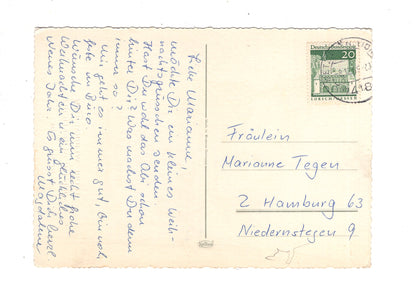 Liebe Marianne!
möchte Dir ein kleines Weih-
nachtsgrüsschen senden.
Hast Du wohl das Abi schon
hinter Dir? Was machst Du denn
immer so?
Mir geht es immer gut, bin noch
im Büro.
Wünsche Dir nun recht frohe
Weihnachten u. ein glückliches
Neues Jahr. Es grüsst Dich herzl.
Magdalene
Deutsche
20
LORSCH/HESSEN
Fräulein
Marianne Tegen
2 Hamburg 63
Niedernstegen 9